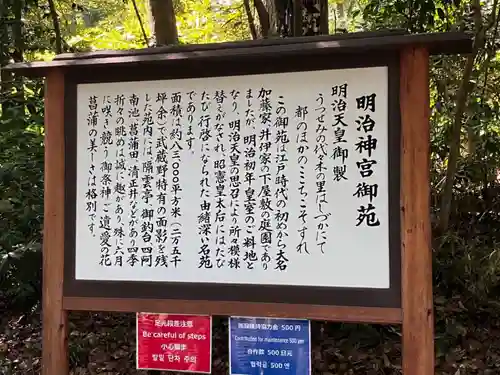 明治神宮御苑
明治天皇御製
うつせみの代々木の里はしづかにて
都のほかのここちこそすれ
この御苑は江戸時代の初めから大名
加藤家、井伊家の下屋敷の庭園であり
ましたが、明治初年皇室のご料地と
なり、明治天皇の思召により所々模様
替えがなされ昭憲皇太后にはたび
たび行啓になられた由緒深い名苑
であります。
面積は約八三〇〇〇平方米(二万五千
坪余)で武蔵野特有の面影を残
した苑内には隔雲亭、御釣台、四阿
南池、菖蒲田、清正井などがあり四季
折々の眺めは誠に趣があり殊に六月
に咲き競う御祭神ご遺愛の花
菖蒲の美しさは格別です。
足元段差注意
Be careful of steps
小心脚下
발밑 단차 주의
施設維持協力金 500円
Contribution for maintenance 500 yen
合作款 500日元
협력금 500엔